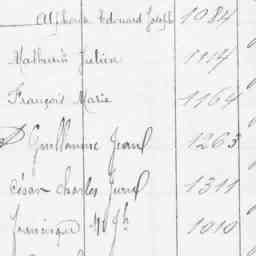 Alphonse Edouard Joseph 1084
Mathurin Julien 1114
François Marie 1164
Guillaume Jean 1263
César Charles 1311
Francisque 1010